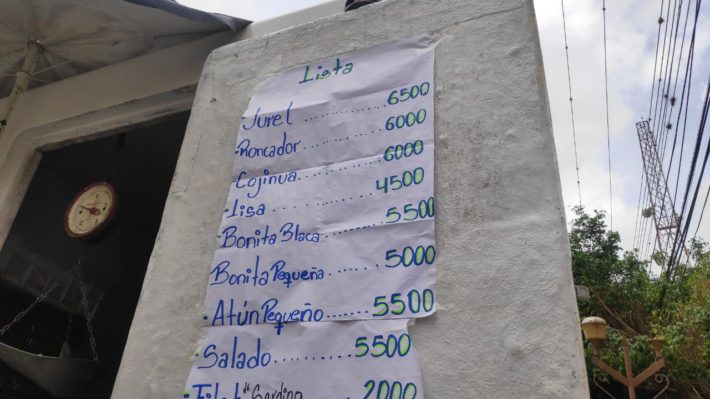 Lista
- Jurel............6500
- Roncador..........6000
Cojinua............6000
- Lisa............4500
- Bonita Blaca........5500
Bonita Pequeña.......5000
- Atún Pequeño.......5500
- Salado...........5500
2000